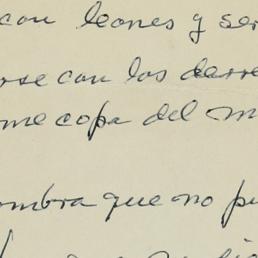 con leones y ser
rse con los
me copa del m
ombra que no pu